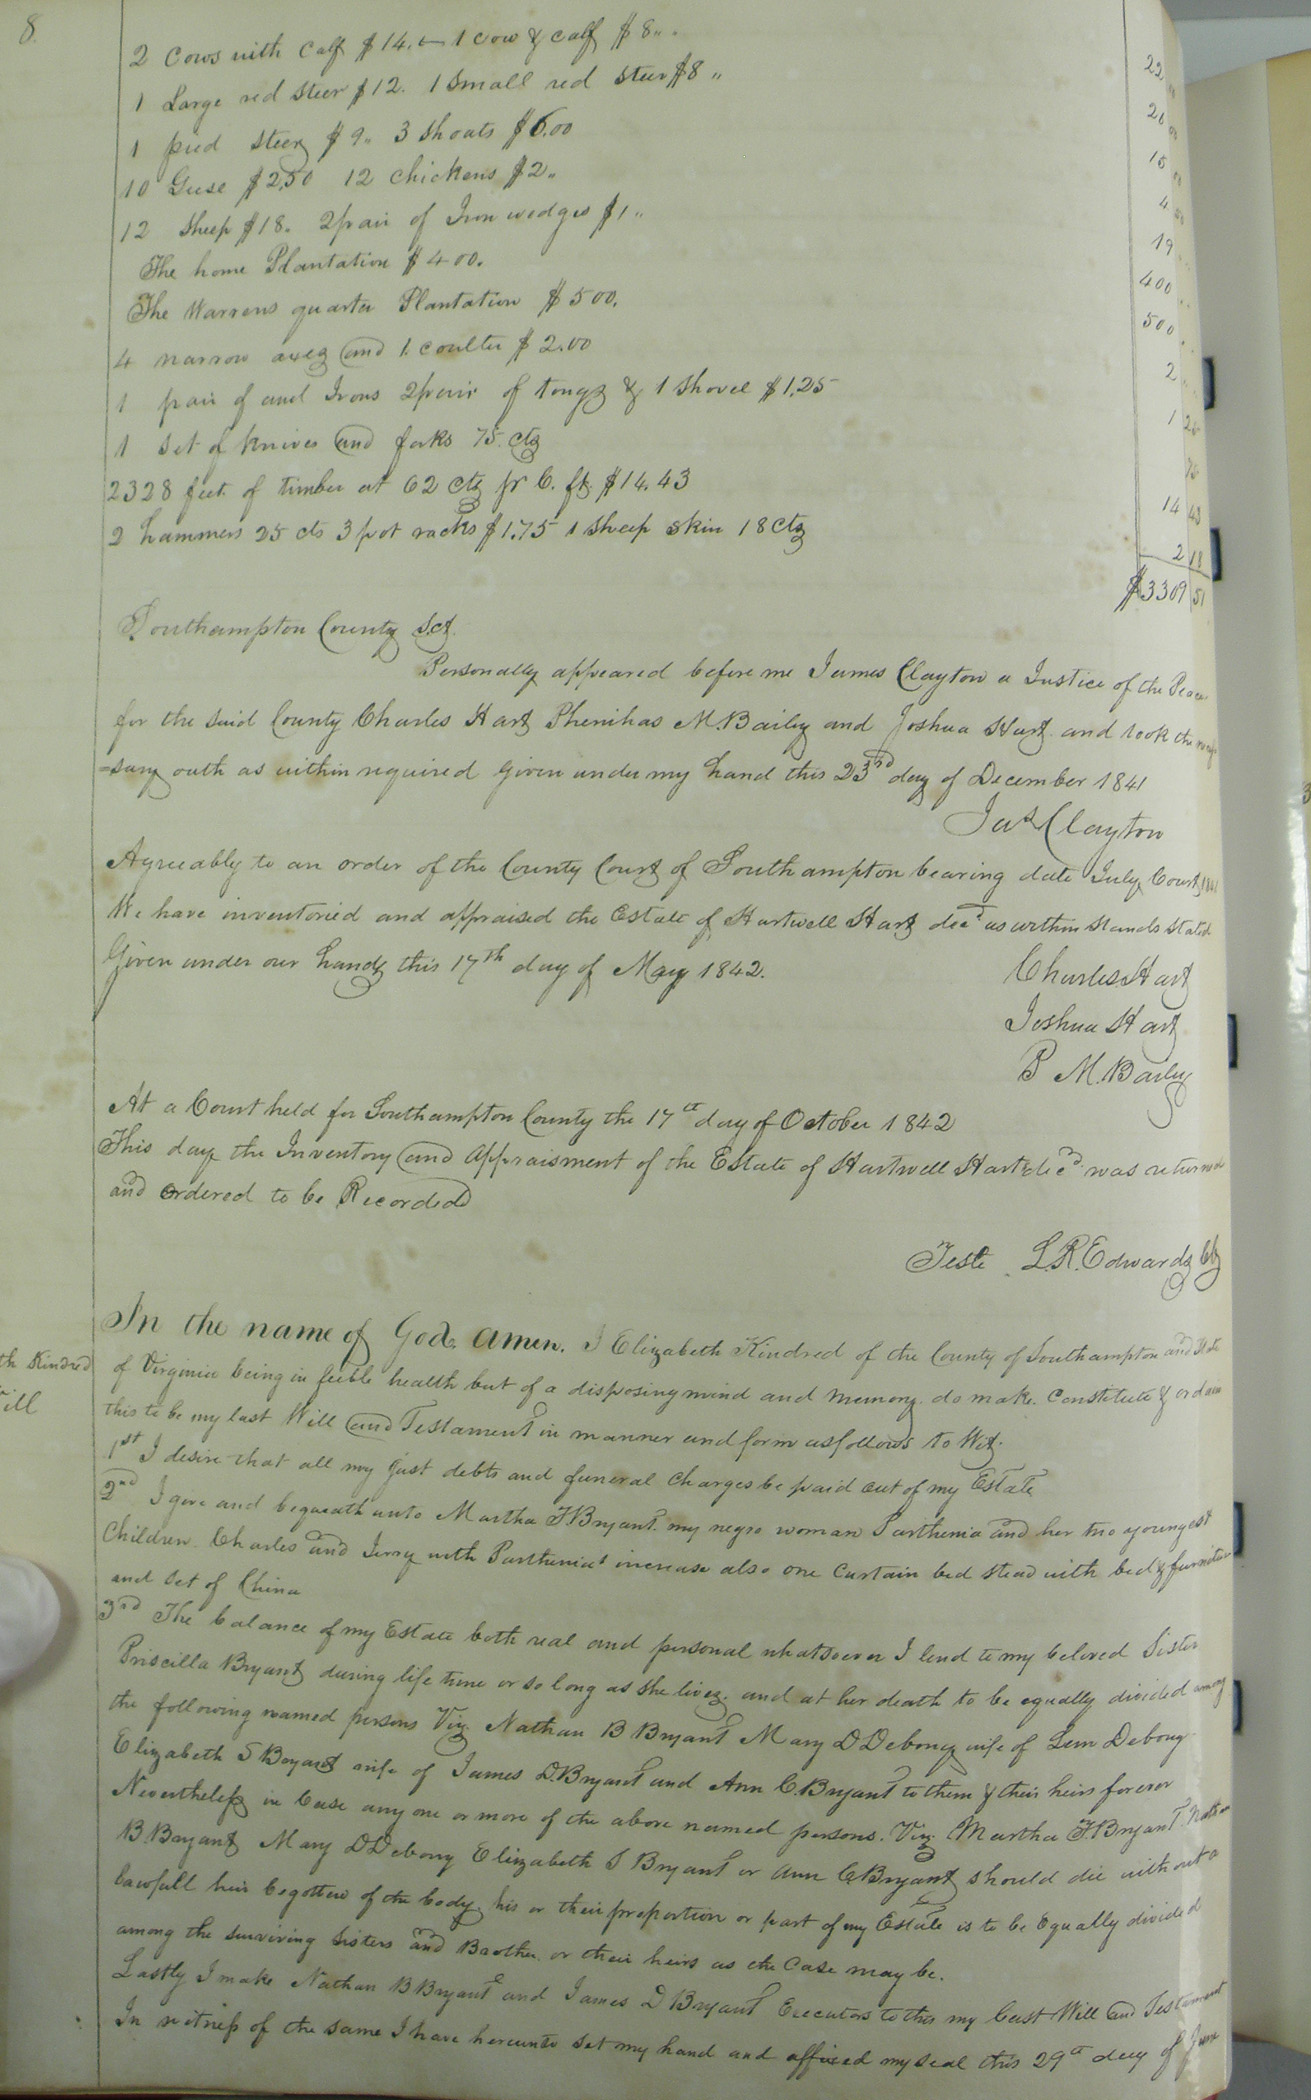 8.
2 Cows with Calf $14. 1 Cow & Calf $8.. 22
1 Large red Steer $12. 1 Small red Steer $8 " 20 00
1 pied Steer $9.. 3 Shoats $6.00 15 00
10 Geese $2,50 12 Chickens $2.. 4 50
12 Sheep $18. 2 pair of Iron wedges $1.. 19
The home Plantation $400. 400
The Warrens quarter Plantation $500. 500
4 narrow axes and 1. Coulter $2.00 2
1 pair of and Irons 2 pair of tongs & 1 Shovel $1,25 1 25
1 Set of Knives and forks 75. Cts 75
2328 feet. of timber at 62 cts pr C. ft. $14.43 14 43
2 hammers 25 cts 3 pot racks $1.75 1 Sheep Skin 18 Cts 2 18
$3309 51
Southampton County Sct.
Personally appeared before me James Clayton a Justice of the Peace
for the said County Charles Hart Phenihas M. Bailey and Joshua Hart and took the
=sary oath as within required Given under my hand this 23rd day of December 1841
Jas Clayton
Agreeably to an order of the County Court of Southampton bearing date July Court 1841
We have inventoried and appraised the Estate of Hartwell Hart decd as within stands stated
Given under our hands this 17th day of May 1842.
Charles Hart
Joshua Hart
P M. Bailey
At a Court held for Southampton County the 17th day of October 1842
This day the Inventory and appraisment of the Estate of Hartwell Hart decd. was returned
and ordered to be Recorded
Teste L.R. Edwards Clk
In the name of God. Amen. I Elizabeth Kindred of the County of Southampton and State
th Kindred
of Virginia being in feeble health but of a disposing mind and memory. do make. Constitute & ordain
ill
this to be my last Will and Testament in manner and form as follows To Wit.
1st I desire that all my just debts and funeral Charges be paid out of my Estate
2nd I give and bequeath unto Martha F Bryant. my negro woman Parthenia and her two youngest
Children. Charles and Jerry with Parthenia's increase also one Curtain bed stead with bed & furniture
and set of China
3rd The balance of my Estate both real and personal whatsoever I lend to my beloved Sister
Priscilla Bryant during life time or so long as she lives. and at her death to be equally divided among
the following named persons Viz. Nathan B Bryant Mary D Debony wife of Lem Debony
Elizabeth S Boyant wife of James D. Bryant and Ann C. Bryant to them & their heirs forever
Nevertheless in Case any one or more of the above named persons. Viz. Martha F. Bryant Nathan
B. Bryant Mary D Debony Elizabeth S Bryant or Ann C. Bryant should die without a
lawfull heir begotten of the body. his or their proportion or part of my Estate is to be Equally divided
among the surviving Sisters and Brother. or their heirs as the Case may be.
Lastly I make Nathan B Bryant and James D Bryant Executors to this my last Will and Testament
In witness of the same I have hereunto set my hand and affixed my seal this 29th day of June